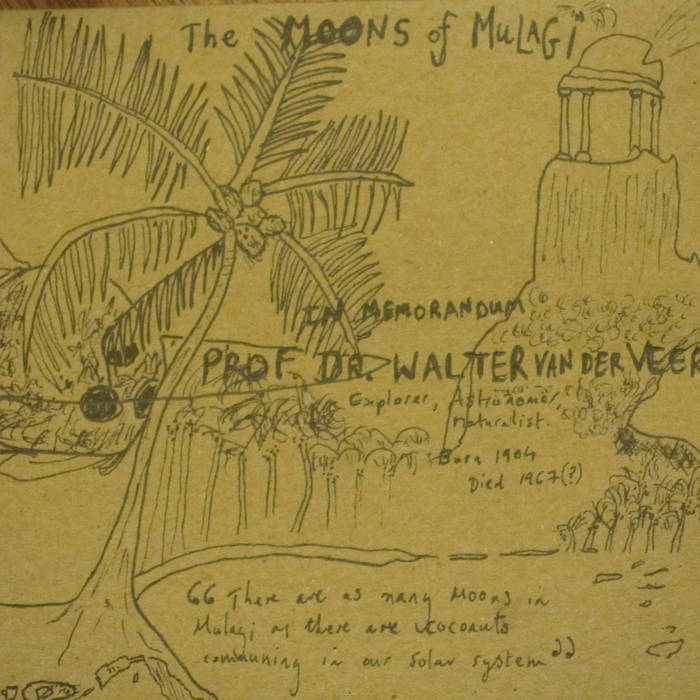 The MOONS of MULAGI
IN MEMORANDUM
PROF. DR. WALTER VAN DER VEER
Explorer, Astronomer,
naturalist.
Born 1904
Died 1967(?)
“There are as many moons in
Mulagi as there are cocoanuts
communing in our solar system”